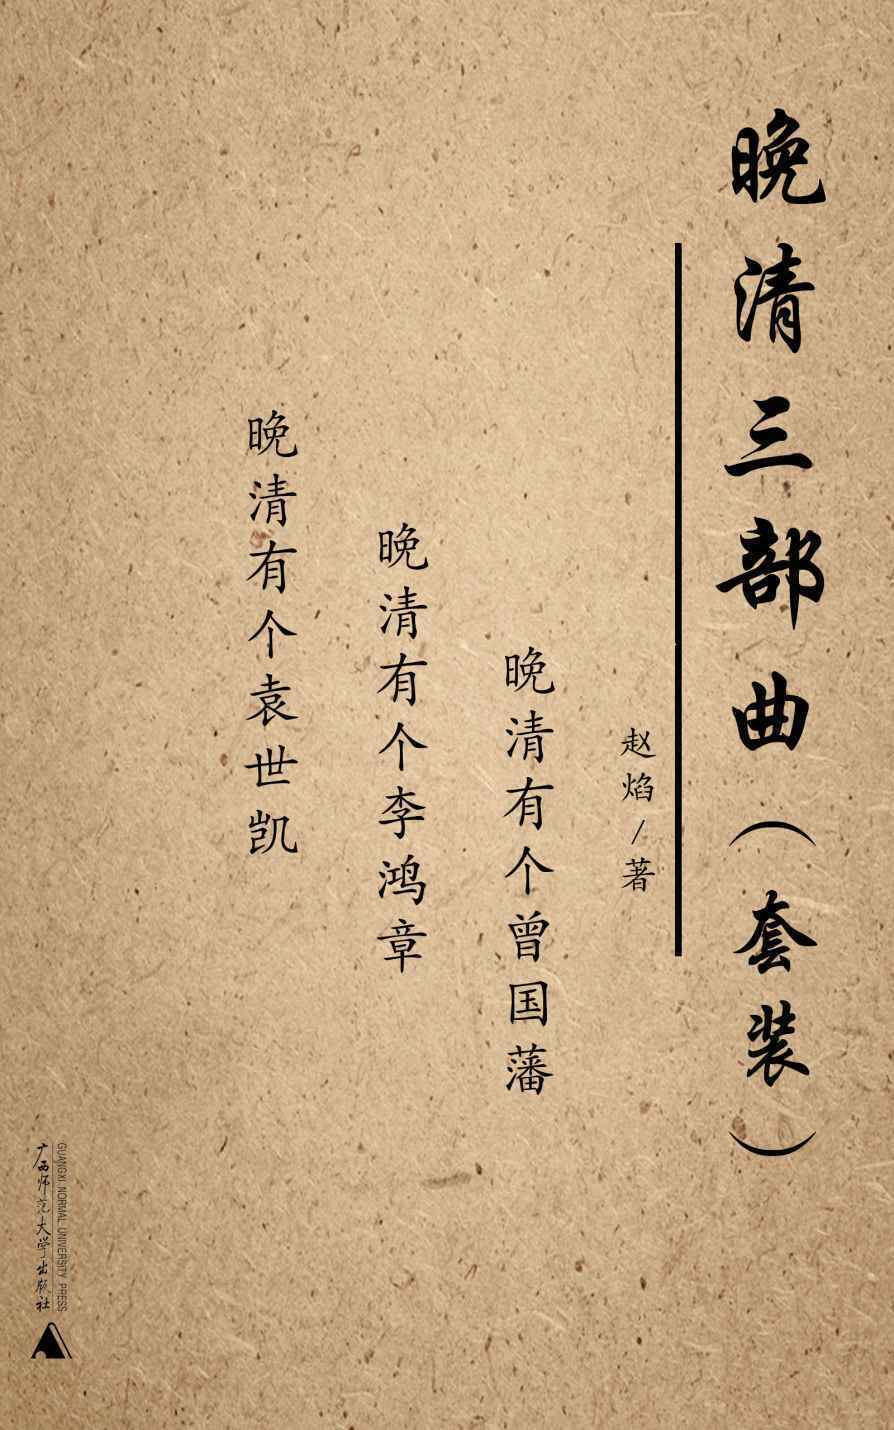 晚清三部曲（套装）
赵焰/著
晚清有个曾国藩
晚清有个李鸿章
晚清有个袁世凯
GUANGXI NORMAL UNIVERSITY PRESS
广西师范大学出版社